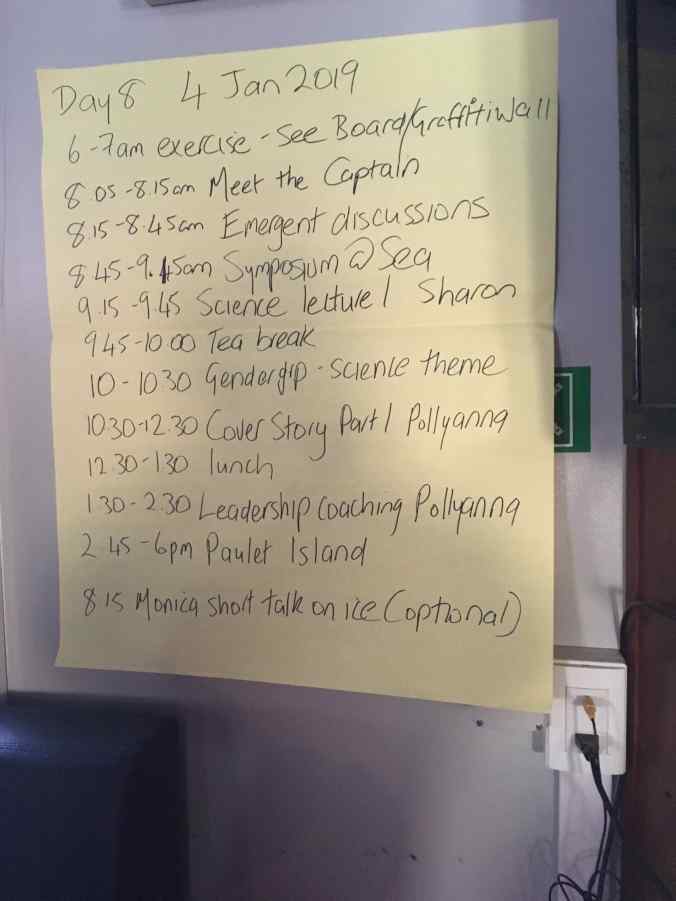 Day 8 4 Jan 2019
6-7am exercise - See Board/Graffiti Wall
8.05-8.15am Meet the Captain
8.15-8.45am Emergent discussions
8.45-9.15am Symposium @ Sea
9.15-9.45 Science lecture 1 Sharon
9.45-10.00 Tea break
10-10.30 Gender gap - science theme
10.30-12.30 Cover Story Part 1 Pollyanna
12.30-1.30 lunch
1.30-2.30 Leadership coaching Pollyanna
2.45-6pm Paulet Island
8.15 Monica short talk on ice (optional)